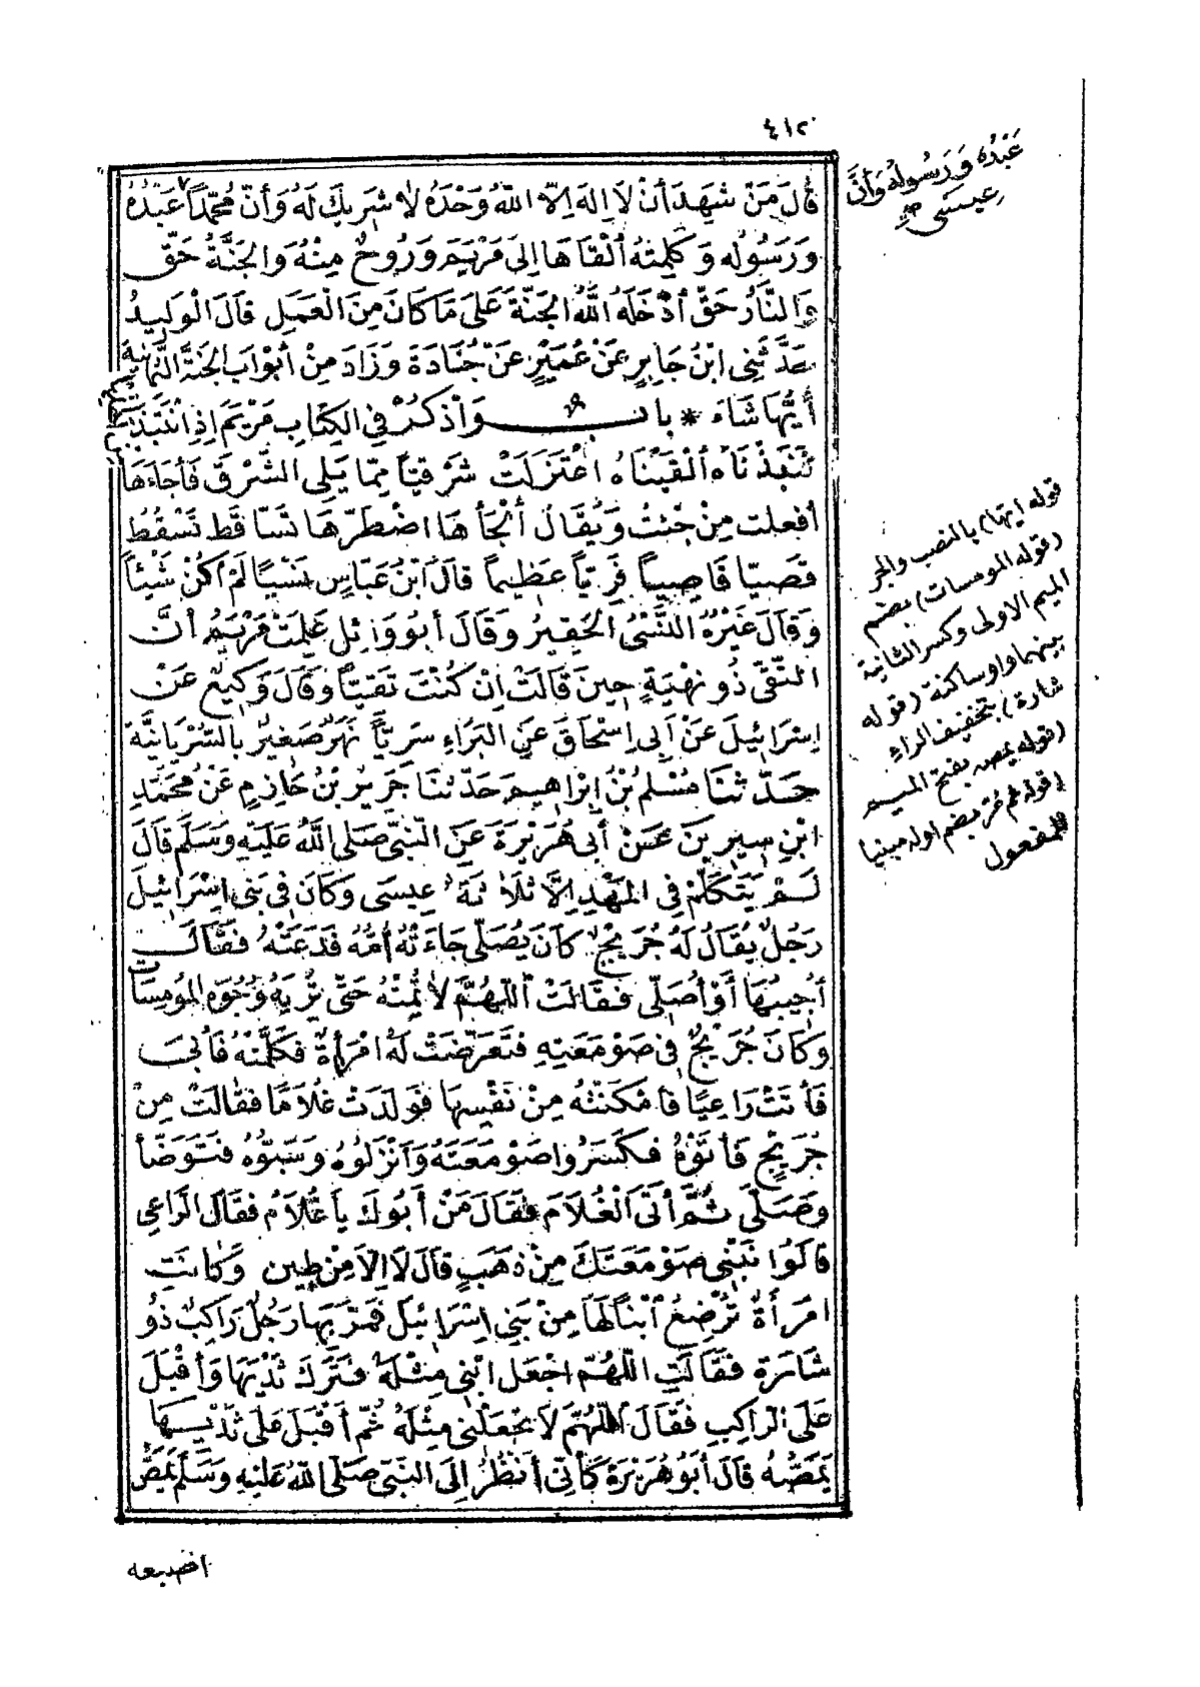 ٤١٢
قَالَ مَنْ شَهِدَ أَنْ لَا إِلَهَ إِلَّا اللَّهُ وَحْدَهُ لَا شَرِيكَ لَهُ وَأَنَّ مُحَمَّدًا عَبْدُهُ
وَرَسُولُهُ وَكَلِمَتُهُ أَلْقَاهَا إِلَى مَرْيَمَ وَرُوحٌ مِنْهُ وَالْجَنَّةُ حَقٌّ
وَالنَّارُ حَقٌّ أَدْخَلَهُ اللَّهُ الْجَنَّةَ عَلَى مَا كَانَ مِنَ الْعَمَلِ قَالَ الْوَلِيدُ
حَدَّثَنِي ابْنُ جَابِرٍ عَنْ عُمَيْرٍ عَنْ جُنَادَةَ وَزَادَ مِنْ أَبْوَابِ الْجَنَّةِ الثَّمَانِيَةِ
أَيَّهَا شَاءَ * باب وَاذْكُرْ فِي الْكِتَابِ مَرْيَمَ إِذِ انْتَبَذَتْ
فَنَبَذْنَاهُ أَلْقَيْنَاهُ اعْتَزَلَتْ شَرْقِيًّا مِمَّا يَلِي الشَّرْقَ فَأَجَاءَهَا
أَفْعَلْتُ مِنْ جِئْتُ وَيُقَالُ أَلْجَأَهَا اضْطَرَّهَا تَسَّاقَطْ تَسْقُطْ
قَصِيًّا قَاصِيًا فَرِيًّا عَظِيمًا قَالَ ابْنُ عَبَّاسٍ نَسْيًا لَمْ أَكُنْ شَيْئًا
وَقَالَ غَيْرُهُ النَّسْيُ الْحَقِيرُ وَقَالَ أَبُو وَائِلٍ عَلِمَتْ مَرْيَمُ أَنَّ
التَّقِيَّ ذُو نُهْيَةٍ حِينَ قَالَتْ إِنْ كُنْتَ تَقِيًّا وَقَالَ وَكِيعٌ عَنْ
إِسْرَائِيلَ عَنْ أَبِي إِسْحَاقَ عَنِ الْبَرَاءِ سَرِيًّا نَهَرٌ صَغِيرٌ بِالسُّرْيَانِيَّةِ
حَدَّثَنَا مُسْلِمُ بْنُ إِبْرَاهِيمَ حَدَّثَنَا جَرِيرُ بْنُ حَازِمٍ عَنْ مُحَمَّدِ
ابْنِ سِيرِينَ عَنْ أَبِي هُرَيْرَةَ عَنِ النَّبِيِّ صَلَّى اللَّهُ عَلَيْهِ وَسَلَّمَ قَالَ
لَمْ يَتَكَلَّمْ فِي الْمَهْدِ إِلَّا ثَلَاثَةٌ عِيسَى وَكَانَ فِي بَنِي إِسْرَائِيلَ
رَجُلٌ يُقَالُ لَهُ جُرَيْجٌ كَانَ يُصَلِّي جَاءَتْهُ أُمُّهُ فَدَعَتْهُ فَقَالَ
أُجِيبُهَا أَوْ أُصَلِّي فَقَالَتْ اللَّهُمَّ لَا تُمِتْهُ حَتَّى تُرِيَهُ وُجُوهَ الْمُومِسَاتِ
وَكَانَ جُرَيْجٌ فِي صَوْمَعَتِهِ فَتَعَرَّضَتْ لَهُ امْرَأَةٌ فَكَلَّمَتْهُ فَأَبَى
فَأَتَتْ رَاعِيًا فَأَمْكَنَتْهُ مِنْ نَفْسِهَا فَوَلَدَتْ غُلَامًا فَقَالَتْ مِنْ
جُرَيْجٍ فَأَتَوْهُ فَكَسَرُوا صَوْمَعَتَهُ وَأَنْزَلُوهُ وَسَبُّوهُ فَتَوَضَّأَ
وَصَلَّى ثُمَّ أَتَى الْغُلَامَ فَقَالَ مَنْ أَبُوكَ يَا غُلَامُ فَقَالَ الرَّاعِي
قَالُوا نَبْنِي صَوْمَعَتَكَ مِنْ ذَهَبٍ قَالَ لَا إِلَّا مِنْ طِينٍ وَكَانَتِ
امْرَأَةٌ تُرْضِعُ ابْنًا لَهَا مِنْ بَنِي إِسْرَائِيلَ فَمَرَّ بِهَا رَجُلٌ رَاكِبٌ ذُو
شَارَةٍ فَقَالَتِ اللَّهُمَّ اجْعَلِ ابْنِي مِثْلَهُ فَتَرَكَ ثَدْيَهَا وَأَقْبَلَ
عَلَى الرَّاكِبِ فَقَالَ اللَّهُمَّ لَا تَجْعَلْنِي مِثْلَهُ ثُمَّ أَقْبَلَ عَلَى ثَدْيِهَا
يَمَصُّهُ قَالَ أَبُو هُرَيْرَةَ كَأَنِّي أَنْظُرُ إِلَى النَّبِيِّ صَلَّى اللَّهُ عَلَيْهِ وَسَلَّمَ يَمَصُّ
اصبعه
عَبْدُهُ وَرَسُولُهُ وَأَنَّ
عِيسَى صح
قوله ايها) بالنصب والجر
(قوله المومسات) بضم
الميم الاولى وكسر الثانية
بينهما واو ساكنة (قوله
شارة) بتخفيف الراء
(قوله يمصه بفتح الميم
(قوله ثم مُرّ بضم اوله مبنيا
للمفعول